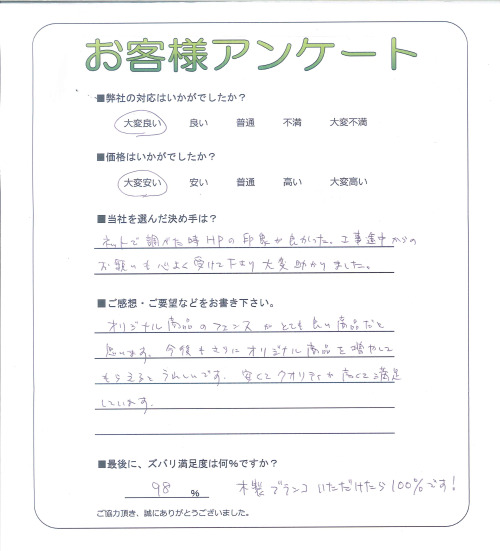 お客様アンケート
■弊社の対応はいかがでしたか？
大変良い 良い 普通 不満 大変不満
■価格はいかがでしたか？
大変安い 安い 普通 高い 大変高い
■当社を選んだ決め手は？
ネットで調べた時HPの印象が良かった。工事途中からの
お願いも心よく受けて下さり大変助かりました。
■ご感想・ご要望などをお書き下さい。
オリジナル商品のフェンスがとても良い商品だと
思います。今後もさらにオリジナル商品を増やして
もらえるとうれしいです。安くてクオリティが高くて満足
しています。
■最後に、ズバリ満足度は何%ですか？
98 % 木製ブランコいただけたら100%です!
ご協力頂き、誠にありがとうございました。